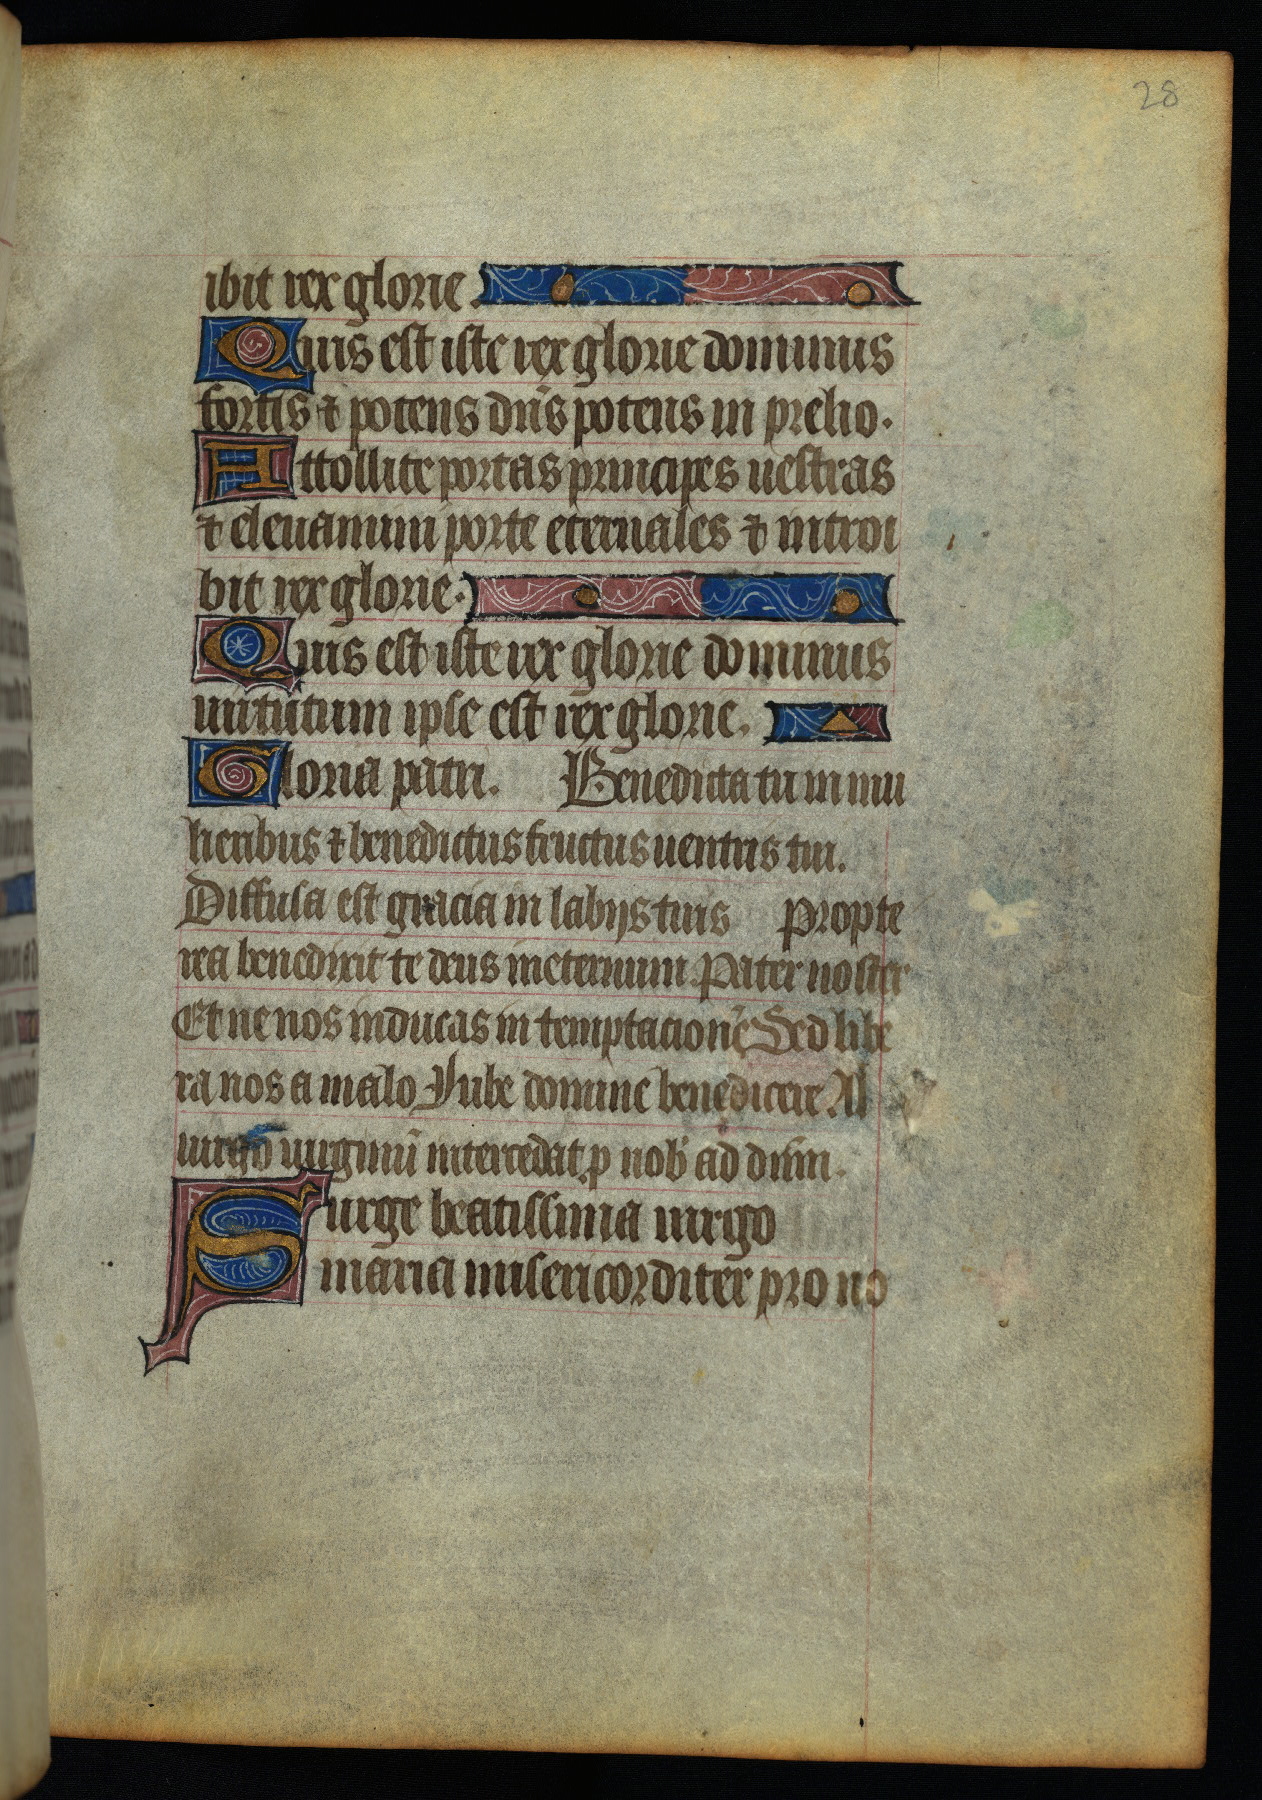 28
ibit rex glorie.
Quis est iste rex glorie dominus
fortis ⁊ potens dn̄s potens in prelio.
Attollite portas principes uestras
⁊ eleuamini porte eternales ⁊ introi
bit rex glorie.
Quis est iste rex glorie dominus
uirtutum ipse est rex glorie.
Gloria patri. Benedicta tu in mu
lieribus ⁊ benedictus fructus uentris tui.
Diffusa est gracia in labijs tuis Propte
rea benedixit te deus ineternum Pater noster
Et ne nos inducas in temptacionē Sed libe
ra nos a malo Iube domine benedicere Al
uirgo uirginū intercedat p nob ad dn̄m.
Surge beatissima uirgo
maria misericorditer pro no